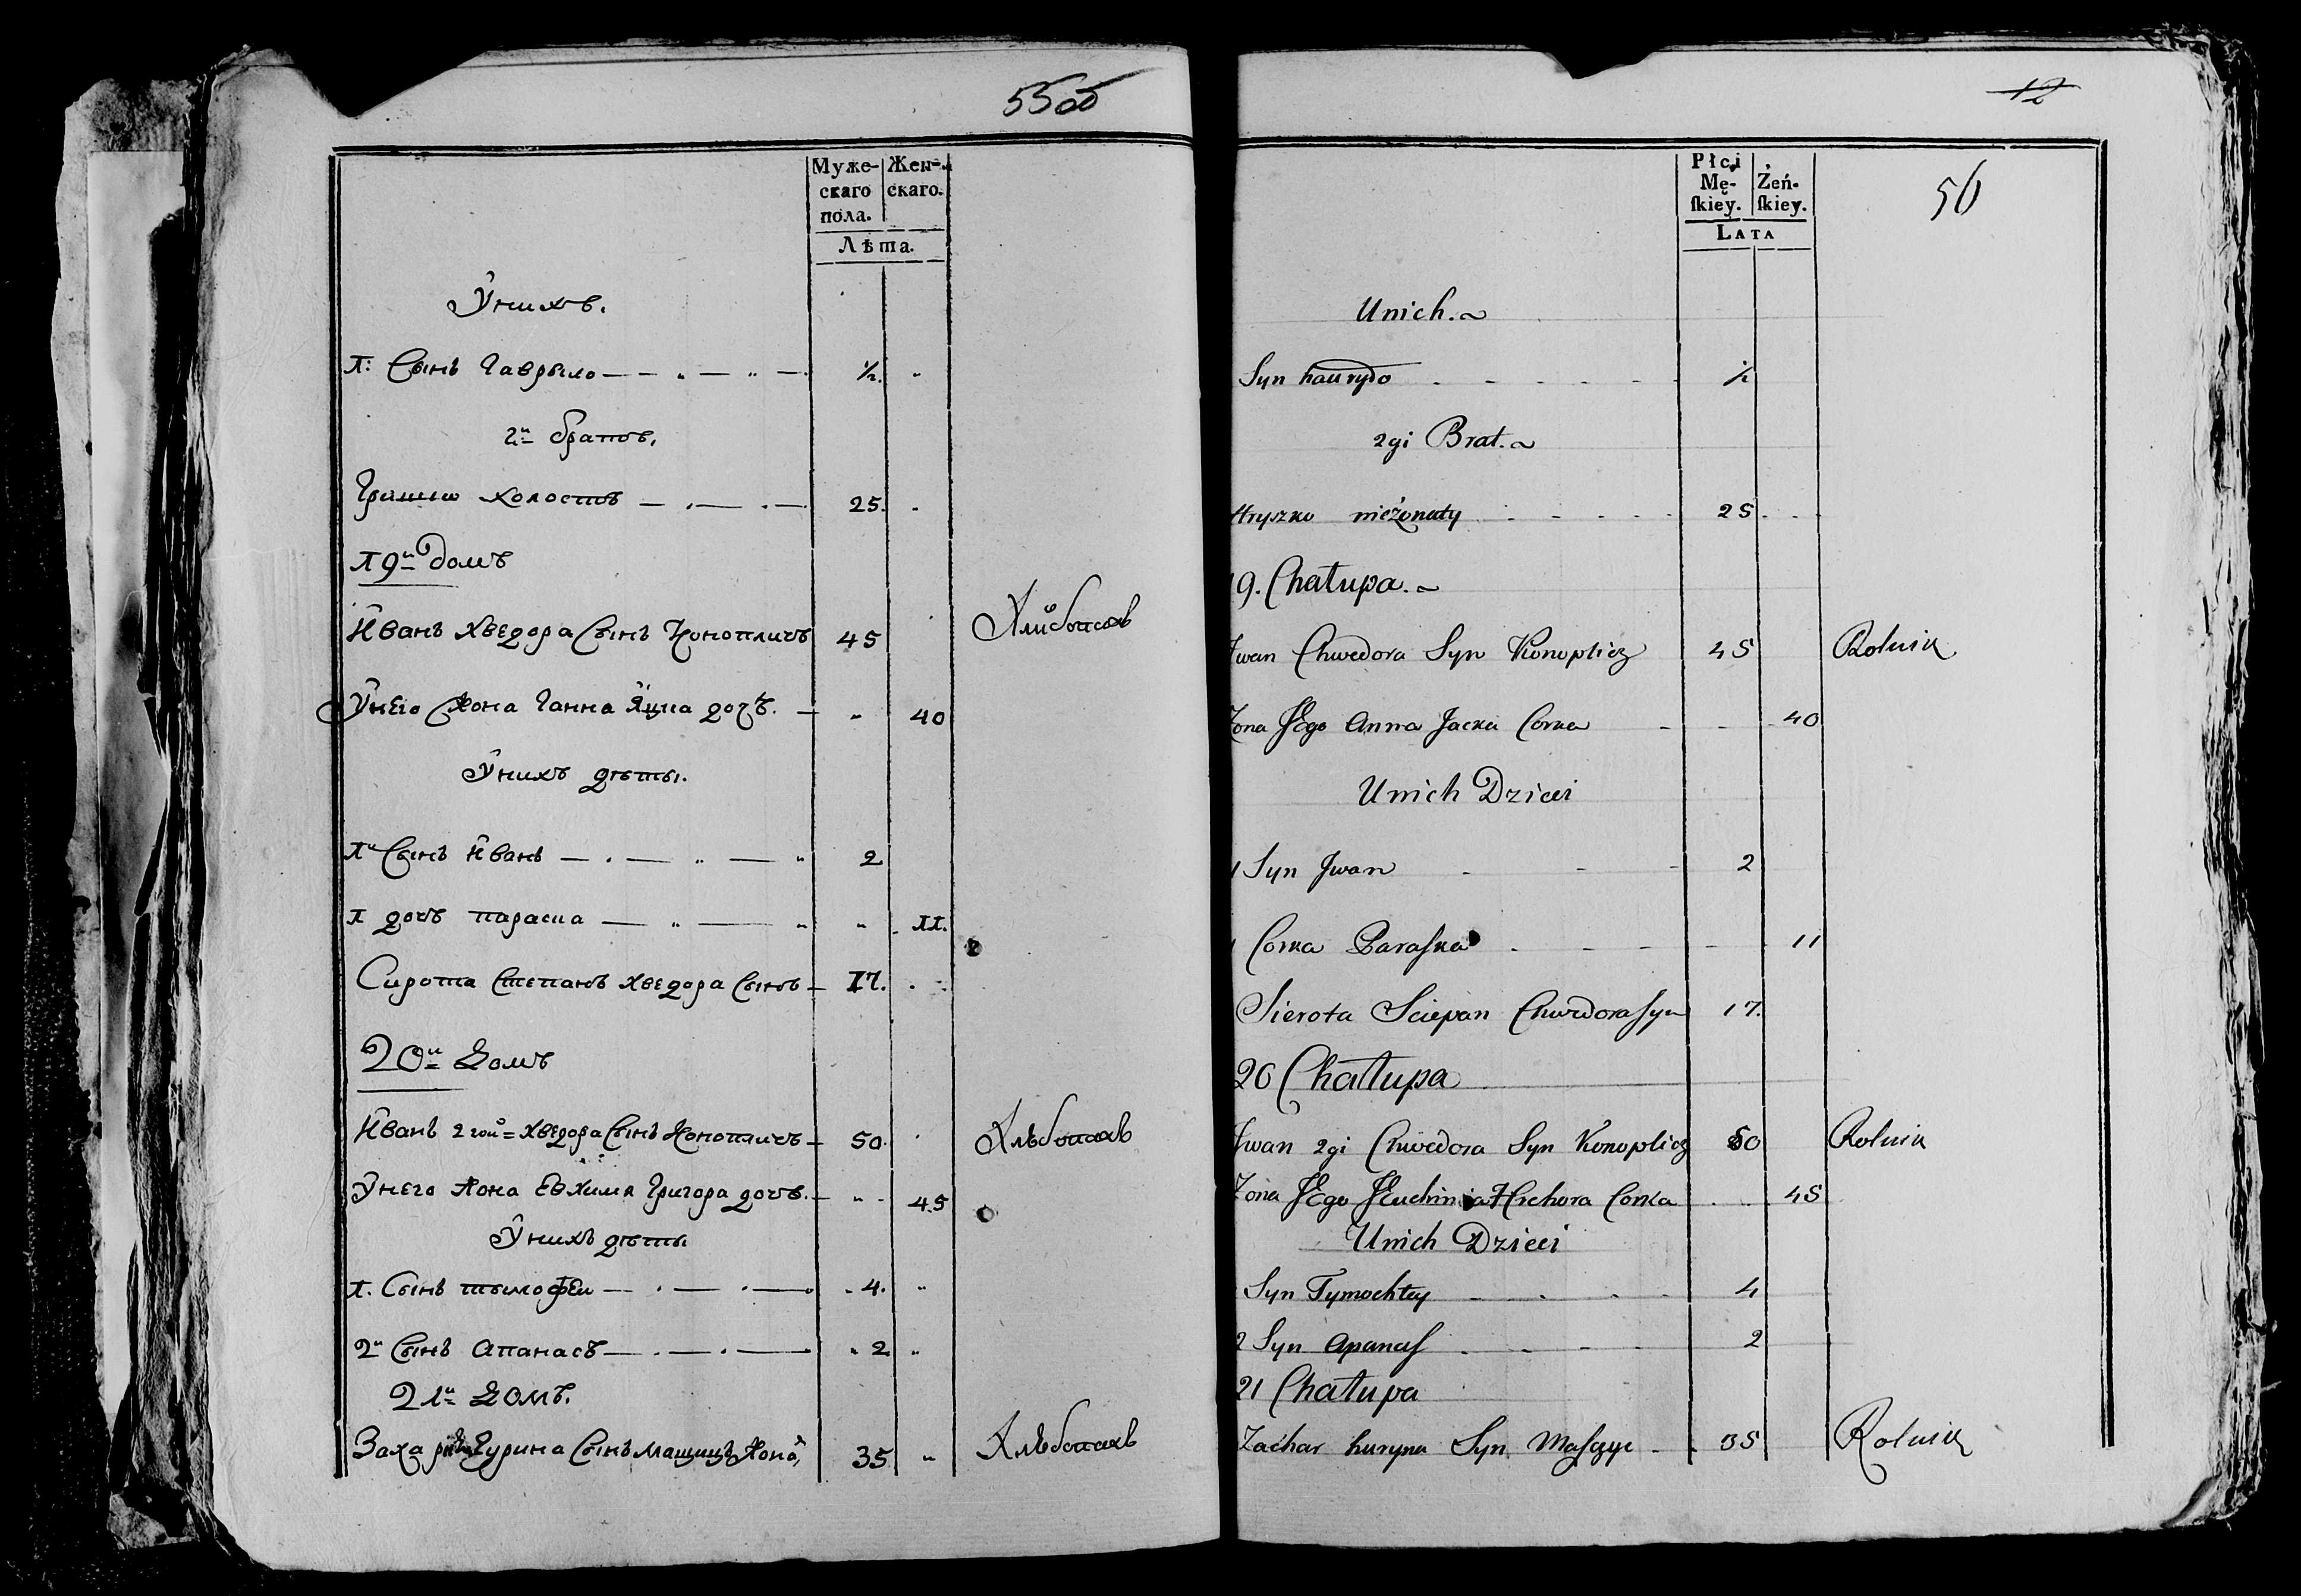 55об
Муже- Жен-
скаго скаго.
пола.
Лѣта.
Унихъ.
1: Сынъ Гаврыло ½.
2й братъ.
Гришко холостъ 25.
19й домъ
Иванъ Хведора Сынъ Конопличъ 45
Унего Жона Ганна Яцка дочъ. 40
Унихъ дѣты.
1й Сынъ Иванъ 2
1 дочъ параска 11.
Сирота Степанъ Хведора Сынъ 17.
20й Домъ
Иванъ 2гой Хведора Сынъ Конопличъ 50. Хлѣбопашъ
Унего Жона Евхима Григора дочъ. 45
Унихъ дѣты
1. Сынъ тымофеи 4.
2й Сынъ Апанасъ 2
21й Домъ.
Гурина Сынъ 35 Хлѣбопашъ
12
Płci
Mę- Żeń-
ſkiey. ſkiey.
LATA
56
Unich.
Syn hauryło ½
2gi Brat.
Hryszko nieżonaty 25
19. Chałupa.
Jwan Chwedora Syn Konoplicz 45 Rolnik
Zona JEgo Anna Jacka Corka 40
Unich Dzieci
1 Syn Jwan 2
1 Corka Paraſka 11
Sierota Sciepan Chwedora ſyn 17.
20 Chałupa
Jwan 2gi Chwedora Syn Konoplicz 50 Rolnik
Zona JEgo JEuchimia Hrehora Corka 45
Unich Dzieci
Syn Tymochtey 4
2 Syn Apanaſ 2
21 Chałupa
Zachar huryna Syn 35 Rolnik